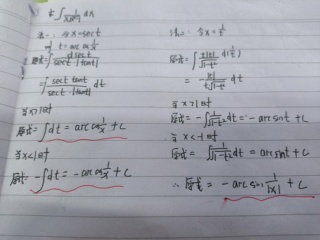 求∫ 1/(x√(x²-1)) dx
法一: 令x=sect
则 t=arccos 1/x
原式=∫ dsect/(sect·|tant|)
=∫ sect tant/(sect·|tant|) dt
当x>1时
原式=∫dt = arccos 1/x + C
当x<-1时
原式=-∫dt = -arccos 1/x + C
法二: 令x=1/t
原式=∫ t|t|/√(1-t²) d(1/t)
= -|t|/(t√(1-t²)) dt
当x>1时
原式=-∫ 1/√(1-t²) dt = -arcsint + C
当x<-1时
原式=∫ 1/√(1-t²) dt = arcsint + C
∴原式= -arcsin 1/|x| + C